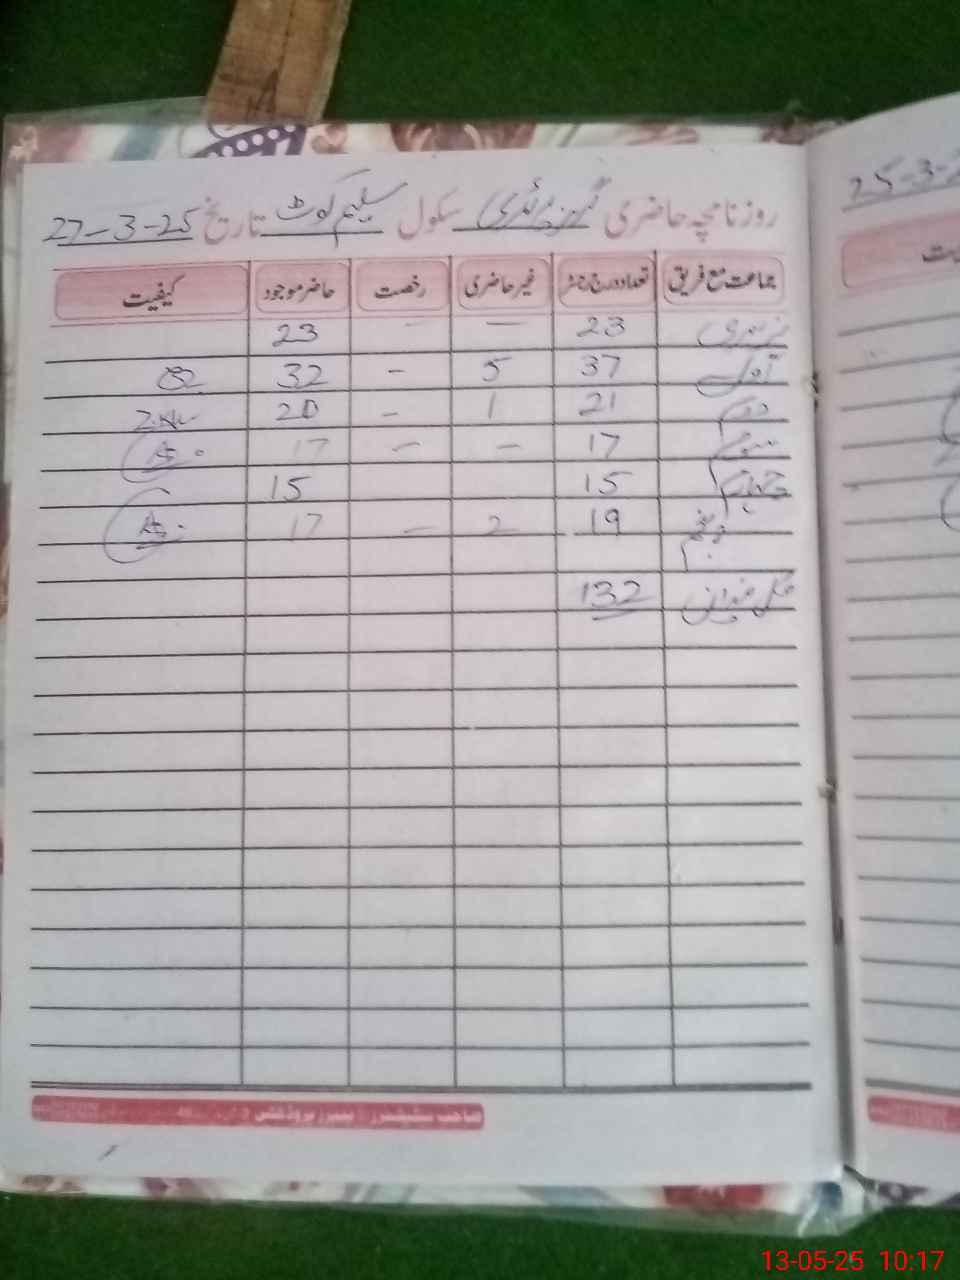 روزنامچہ حاضری گرلز پرائمری سکول سلیم کوٹ تاریخ 27-3-25
جماعت مع فریق تعداد درج رجسٹر غیر حاضری رخصت حاضر موجود کیفیت
نرسری 23 — - 23
اول 37 5 - 32
دوم 21 1 - 20
سوم 17 - - 17
چہارم 15 15
پنجم 19 2 - 17
کل میزان 132
صاحب سٹیشنرز پیپرز پروڈکٹس
25-3-2
13-05-25 10:17